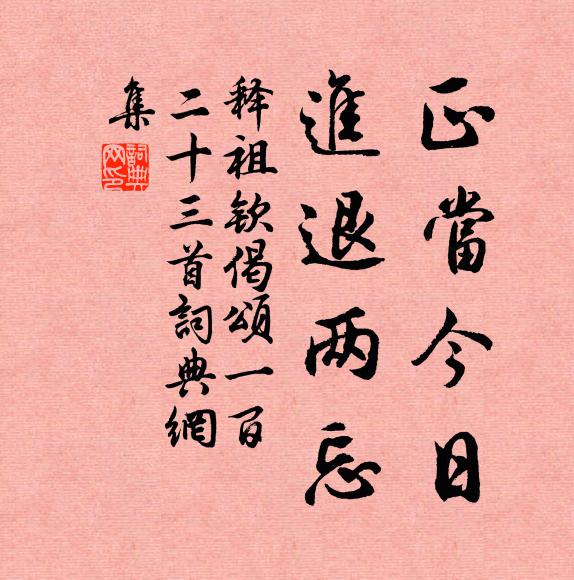 正當今日
進退两忘
释祖钦偈頌一百
二十三首詞典網
集
詞典
网印